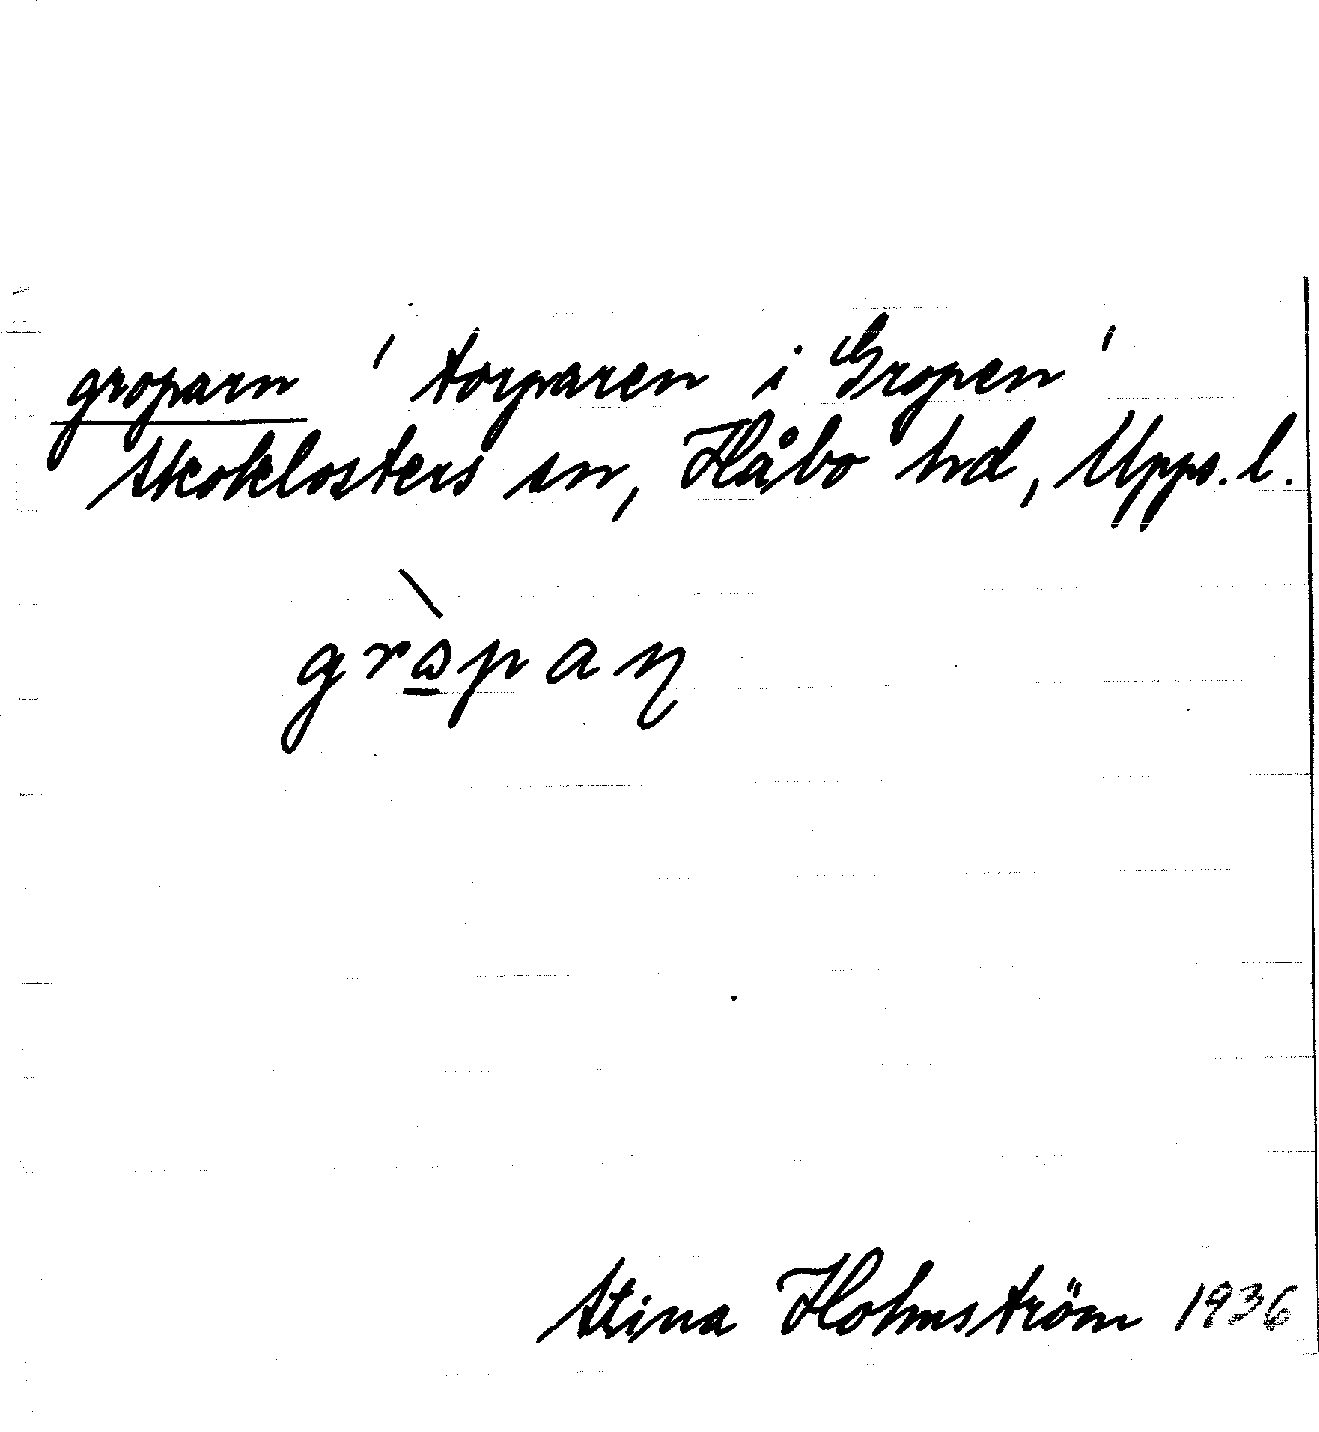 groparn ' torparen i Gropen '
Skoklosters sn, Håbo hd, Upps. l.
grɷ̀paɳ
Stina Holmström 1936